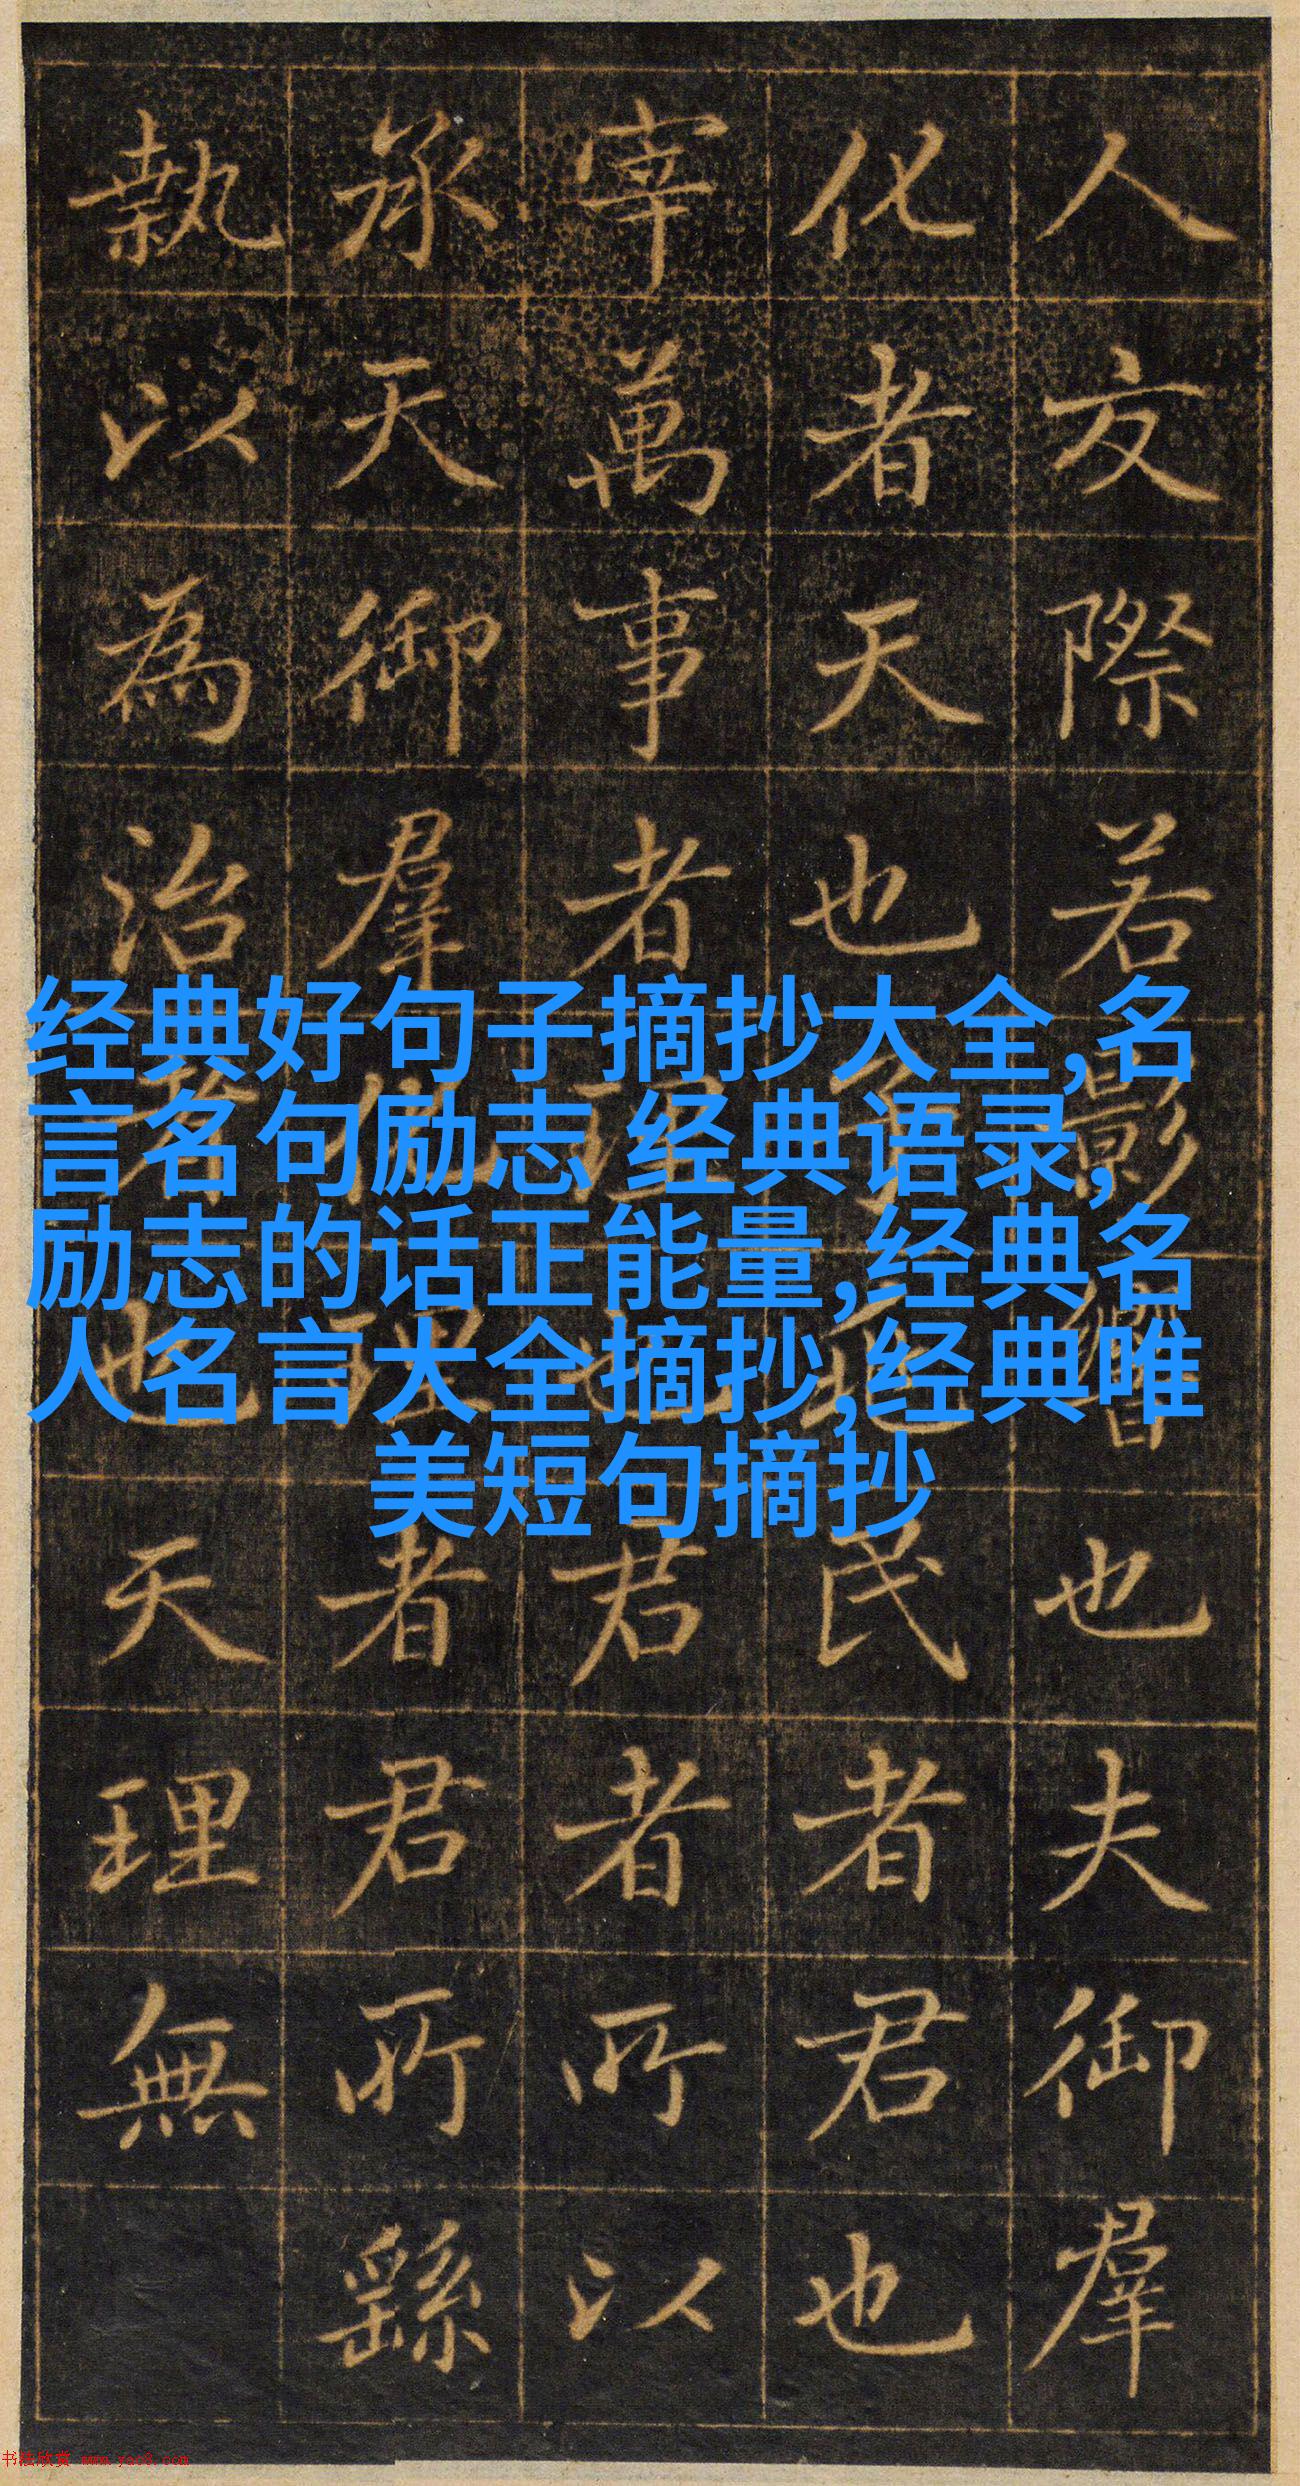 人交際若影響也夫御羣
化者天也民者君也
宰萬事者理也君者所以
承天御羣化理者君所繇
執以為治者也天理無
经典好句子摘抄大全,名
言名句励志 经典语录,
励志的话正能量,经典名
人名言大全摘抄,经典唯
美短句摘抄
书法欣赏 www.yac8.com